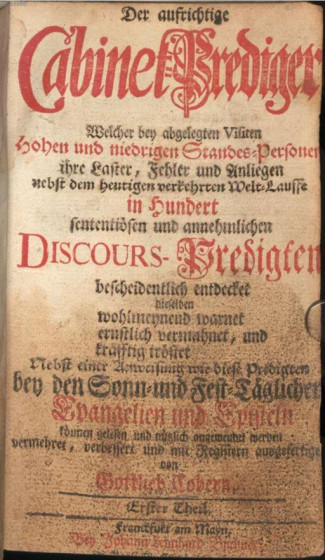 Der aufrichtige
Cabinet-Prediger
Welcher bey abgelegten Visiten
Hohen und niedrigen Standes-Personen
ihre Laster, Fehler und Anliegen
nebst dem heutigen verkehrten Welt-Lauffe
in Hundert
sententiösen und annehmlichen
DISCOURS-Predigten
bescheidentlich entdecket
dieselben
wohlmeynend warnet
ernstlich vermahnet, und
kräfftig tröstet
Nebst einer Anweisung wie diese Predigten
bey den Sonn- und Fest-Täglichen
Evangelien und Episteln
können gelesen und nützlich angewendet werden
vermehret, verbessert und mit Registern ausgefertiget
von
Gottlieb Cobern,
Erster Theil.
Franckfurt am Mayn,
Bey Johann